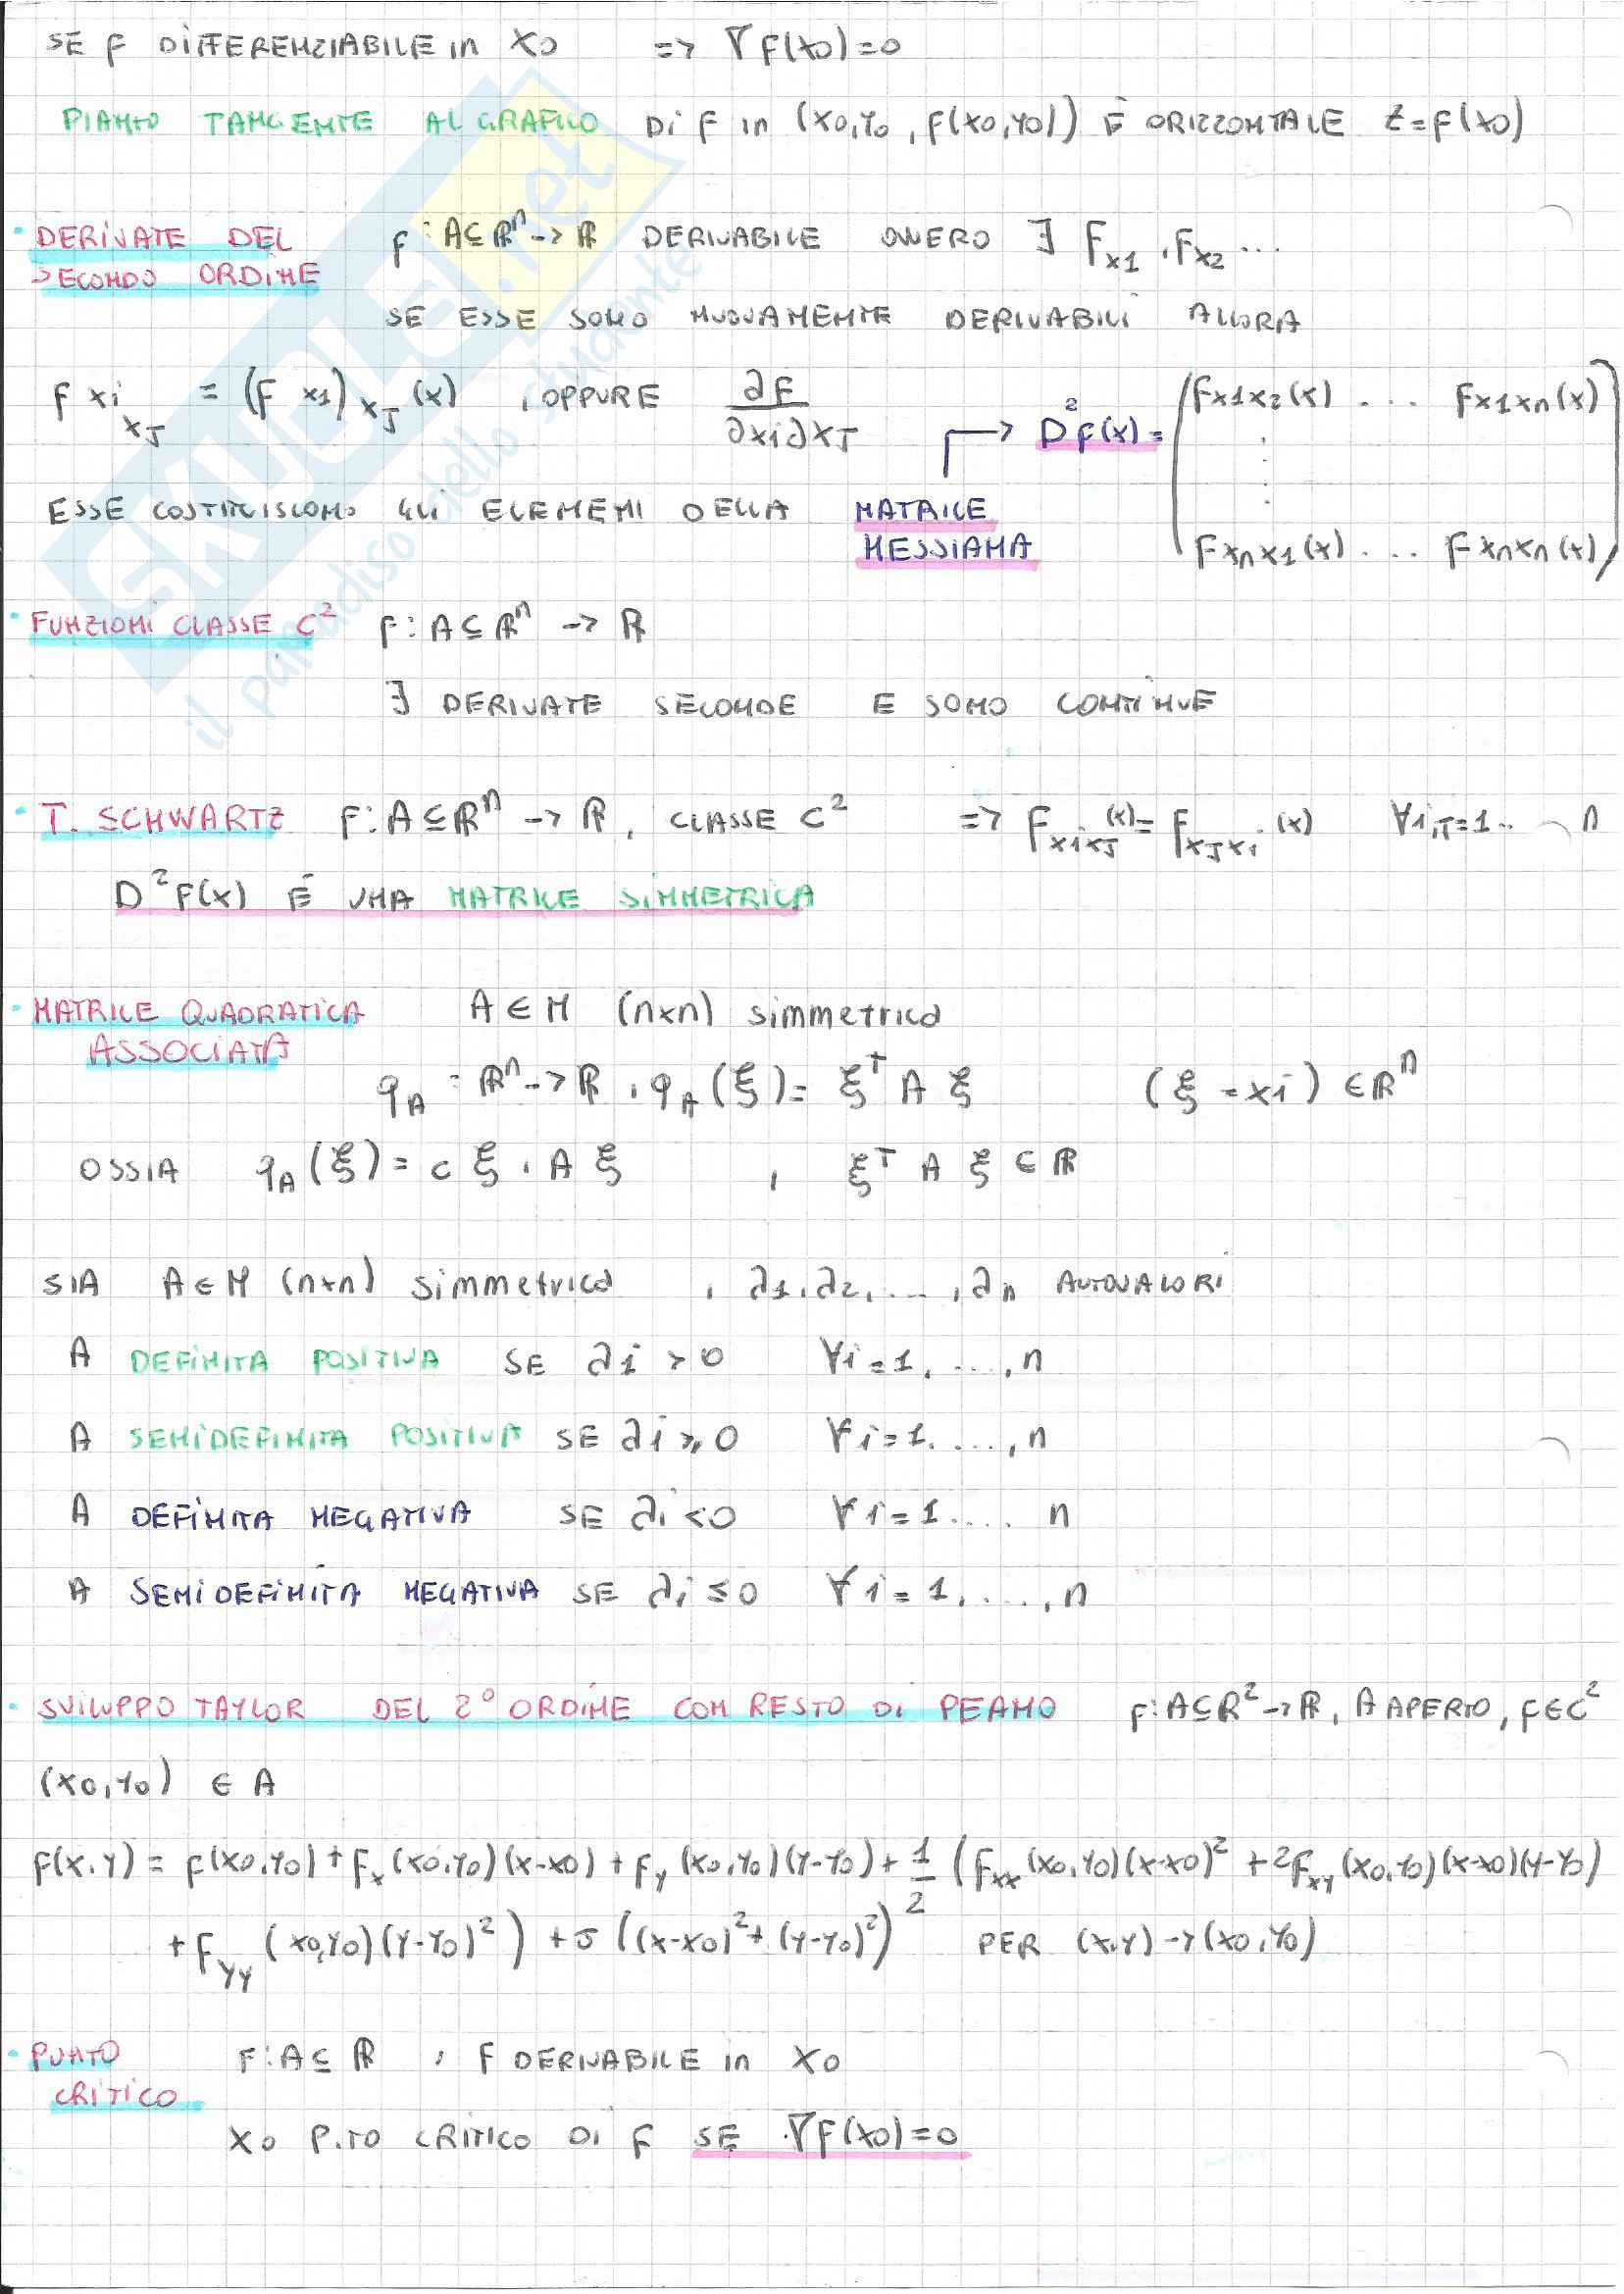 SE F DIFFERENZIABILE in X0 => ∇F(X0)=0
PIANO TANGENTE AL GRAFICO DI F in (X0,Y0, F(X0,Y0)) È ORIZZONTALE Z=F(X0)
· DERIVATE DEL SECONDO ORDINE F: A⊆ℝⁿ -> ℝ DERIVABILE OVVERO ∃ Fx1, Fx2 ...
SE ESSE SONO NUOVAMENTE DERIVABILI ALLORA
F xi xJ = (F x1) xJ (x), OPPURE ∂F/∂xi∂xJ → D²F(x) = ( Fx1x2(x) . ... Fx1xn(x)
⋮
Fxnx1(x) . ... Fxnxn(x) )
ESSE COSTITUISCONO GLI ELEMENI DELLA MATRICE HESSIANA
· FUNZIONI CLASSE C² F: A⊆ℝⁿ -> ℝ
∃ DERIVATE SECONDE E SONO CONTINUE
· T. SCHWARTZ F: A⊆ℝⁿ -> ℝ, CLASSE C² => Fxixj(x) = Fxjxi(x) ∀i,J=1.. n
D²F(x) È UNA MATRICE SIMMETRICA
· MATRICE QUADRATICA ASSOCIATA A∈M (n×n) simmetrica
qA : ℝⁿ -> ℝ, qA(ξ) = ξᵀ A ξ (ξ = xi) ∈ℝⁿ
OSSIA qA(ξ) = < ξ, A ξ , ξᵀ A ξ ∈ ℝ
SIA A∈M (n×n) simmetrica , λ1, λ2, ..., λn AUTOVALORI
A DEFINITA POSITIVA SE λi > 0 ∀i=1, ..., n
A SEMIDEFINITA POSITIVA SE λi ≥ 0 ∀i=1, ..., n
A DEFINITA NEGATIVA SE λi < 0 ∀i=1.... n
A SEMIDEFINITA NEGATIVA SE λi ≤ 0 ∀i=1, ..., n
· SVILUPPO TAYLOR DEL 2° ORDINE CON RESTO DI PEANO F: A⊆ℝ² -> ℝ, A APERTO, F∈C²
(X0,Y0) ∈ A
F(X,Y) = F(X0,Y0) + Fx(X0,Y0)(X-X0) + Fy(X0,Y0)(Y-Y0) + 1/2 (Fxx(X0,Y0)(X-X0)² + 2Fxy(X0,Y0)(X-X0)(Y-Y0)
+ Fyy(X0,Y0)(Y-Y0)²) + o((X-X0)² + (Y-Y0)²) PER (X,Y) -> (X0,Y0)
· PUNTO CRITICO F: A⊆ℝ , F DERIVABILE in X0
X0 P.TO CRITICO DI F SE ∇F(X0)=0
SKUOLA.net
il paradiso dello studente